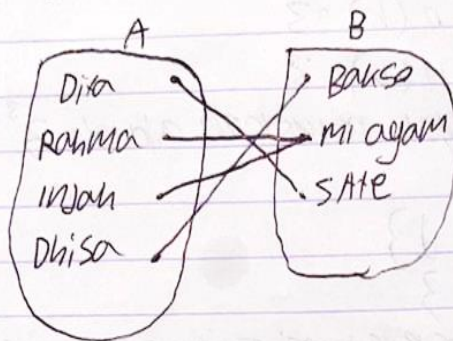 A
B
Dita
Rahma
Indah
Dhisa
Bakso
Mi ayam
SAte